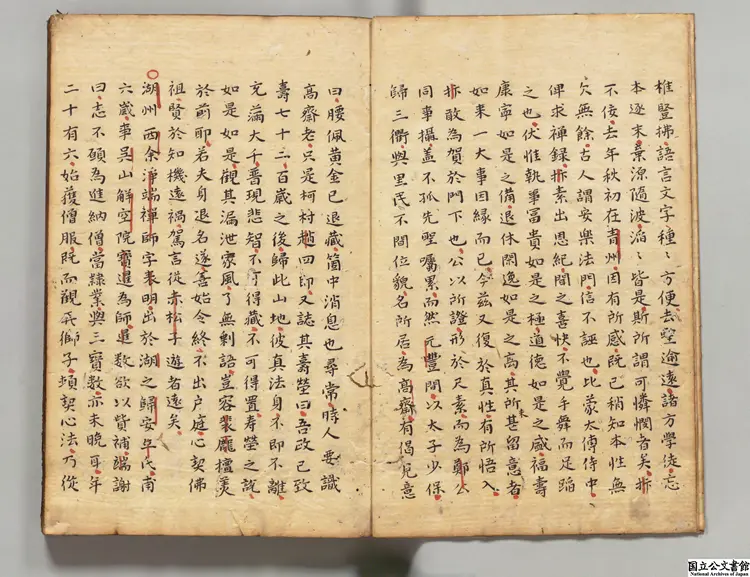 椎豎拂語言文字種〻方便去聖逾遠諸方學徒忘
本逐末棄源隨波滔〻皆是斯所謂可憐憫者矣抃
不佞去年秋初在青州因有所感既已稍知本性無
欠無餘古人謂安樂法門信不誣也比蒙太傅侍中
俾求禪録抃素出恩紀聞之喜快不覺手舞而足蹈
之也伏惟執事冨貴如是之極道德如是之盛福壽
康寧如是之備退休閑逸如是之高其所未甚留意者
如来一大事因緣而已今茲又復於真性有所悟入
抃敢為賀於門下也公以所證形於尺素而為鄭公
同事攝盖不孤先聖囑累而然元豐間以太子少保
歸三衢與里民不間位貌名所居為高齋有偈見意
曰腰佩黃金已退藏箇中消息也尋常時人要識
高齋老只是柯村趙四即又誌其壽塋曰吾政已致
壽七十二百歲之後歸此山地彼真法身不即不離
充滿大千普現悲智不可得藏不可得置壽塋之説
如是如是觀其漏泄家風了無剩語豈容裴龐擅羙
於前耶若夫身退名遂善始令終不出户庭心契佛
祖賢於知機遠禍駕言從赤松子遊者遠矣
湖州西余淨端禪師字表明出於湖之歸安丘氏甫
六歲事吳山解空院寶暹為師暹數欲以貲補端謝
曰志不願為進納僧當隷業與三寶數亦未晚耳年
二十有六始獲僧服既而觀弄師子頓契心法乃從
国立公文書館
National Archives of Japan